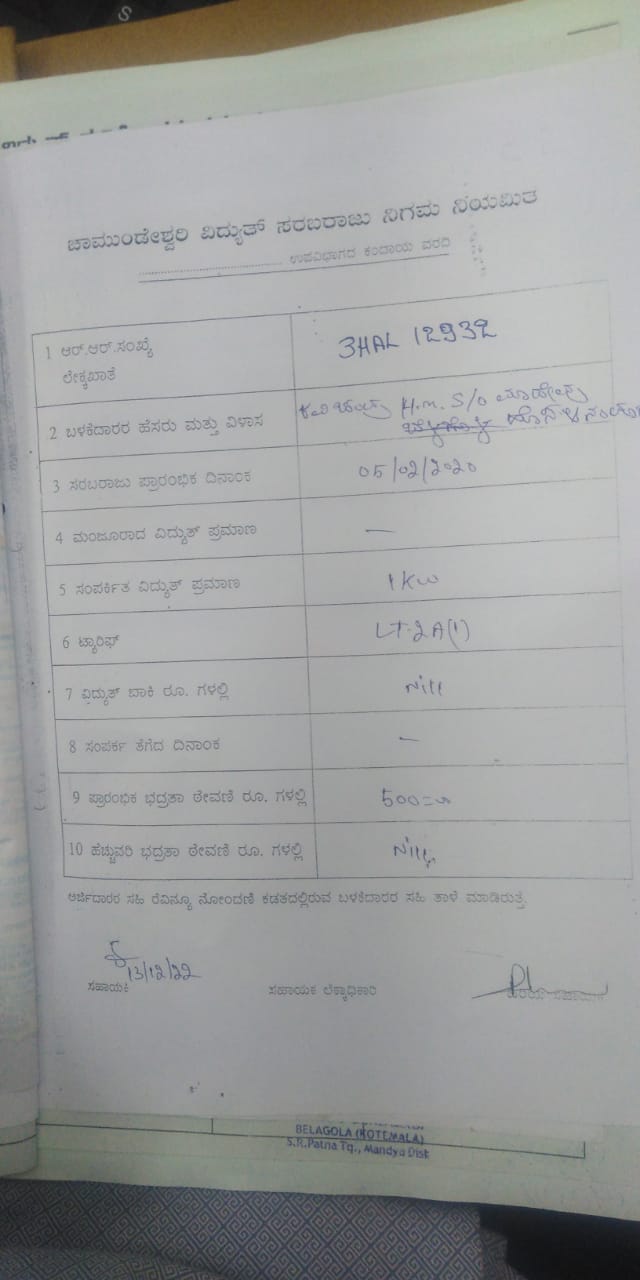 ಚಾಮುಂಡೇಶ್ವರಿ ವಿದ್ಯುತ್ ಸರಬರಾಜು ನಿಗಮ ನಿಯಮಿತ
.................................... ಉಪವಿಭಾಗದ ಕಂದಾಯ ವರದಿ
1 ಆರ್.ಆರ್.ಸಂಖ್ಯೆ
ಲೆಕ್ಕಖಾತೆ
3HAL 12932
2 ಬಳಕೆದಾರರ ಹೆಸರು ಮತ್ತು ವಿಳಾಸ
H.M. S/o
3 ಸರಬರಾಜು ಪ್ರಾರಂಭಿಕ ದಿನಾಂಕ
05/02/2020
4 ಮಂಜೂರಾದ ವಿದ್ಯುತ್ ಪ್ರಮಾಣ
—
5 ಸಂಪರ್ಕಿತ ವಿದ್ಯುತ್ ಪ್ರಮಾಣ
1 KW
6 ಟ್ಯಾರಿಫ್
LT-2A(1)
7 ವಿದ್ಯುತ್ ಬಾಕಿ ರೂ. ಗಳಲ್ಲಿ
Nill
8 ಸಂಪರ್ಕ ತೆಗೆದ ದಿನಾಂಕ
—
9 ಪ್ರಾರಂಭಿಕ ಭದ್ರತಾ ಠೇವಣಿ ರೂ. ಗಳಲ್ಲಿ
500=00
10 ಹೆಚ್ಚುವರಿ ಭದ್ರತಾ ಠೇವಣಿ ರೂ. ಗಳಲ್ಲಿ
Nill
ಅರ್ಜಿದಾರರ ಸಹಿ ರೆವಿನ್ಯೂ ನೋಂದಣಿ ಕಡತದಲ್ಲಿರುವ ಬಳಕೆದಾರರ ಸಹಿ ತಾಳೆ ಮಾಡಿರುತ್ತೆ.
13/12/22
ಸಹಾಯಕ
ಸಹಾಯಕ ಲೆಕ್ಕಾಧಿಕಾರಿ
BELAGOLA (KOTEMALA)
S.R.Patna Tq., Mandya Dist